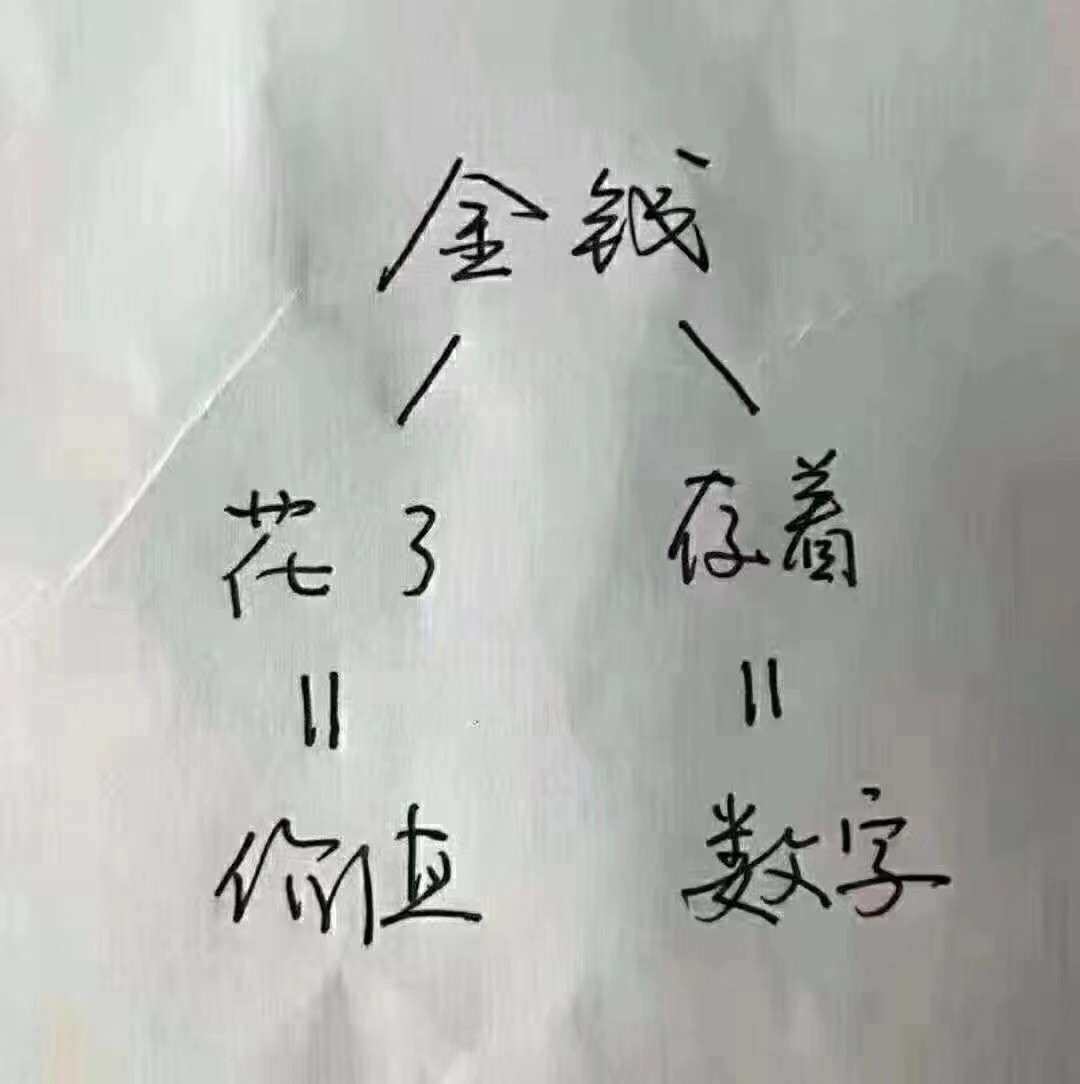 金钱
花了 存着
= =
价值 数字